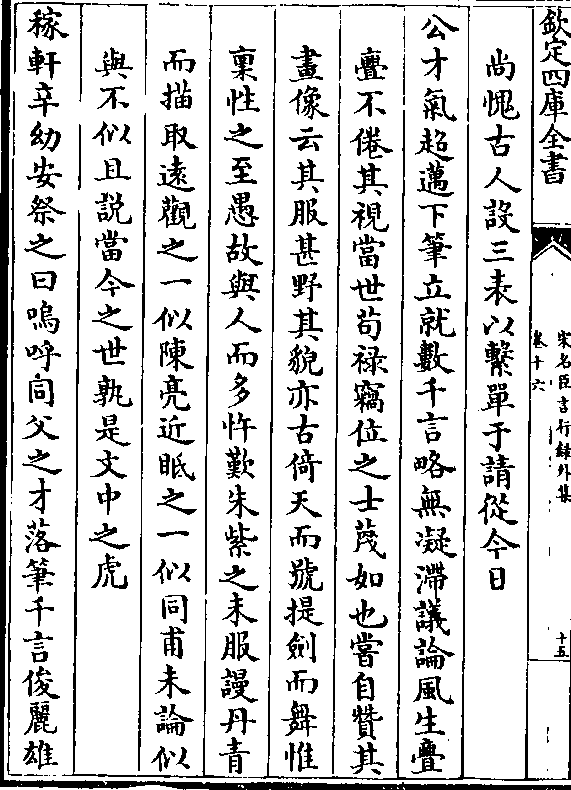 欽定四庫全書
宋名臣言行錄外集
卷十六
十五
尚愧古人設三表以繫單于請從今日
公才氣超邁下筆立就數千言略無凝滯議論風生亹
亹不倦其視當世苟祿竊位之士蔑如也嘗自贊其
畫像云其服甚野其貌亦古倚天而號提劍而舞惟
稟性之至愚故與人而多忤歎朱紫之未服謾丹青
而描取遠觀之一似陳亮近眂之一似同甫未論似
與不似且說當今之世孰是文中之虎
稼軒辛幼安祭之曰嗚呼同父之才落筆千言俊麗雄